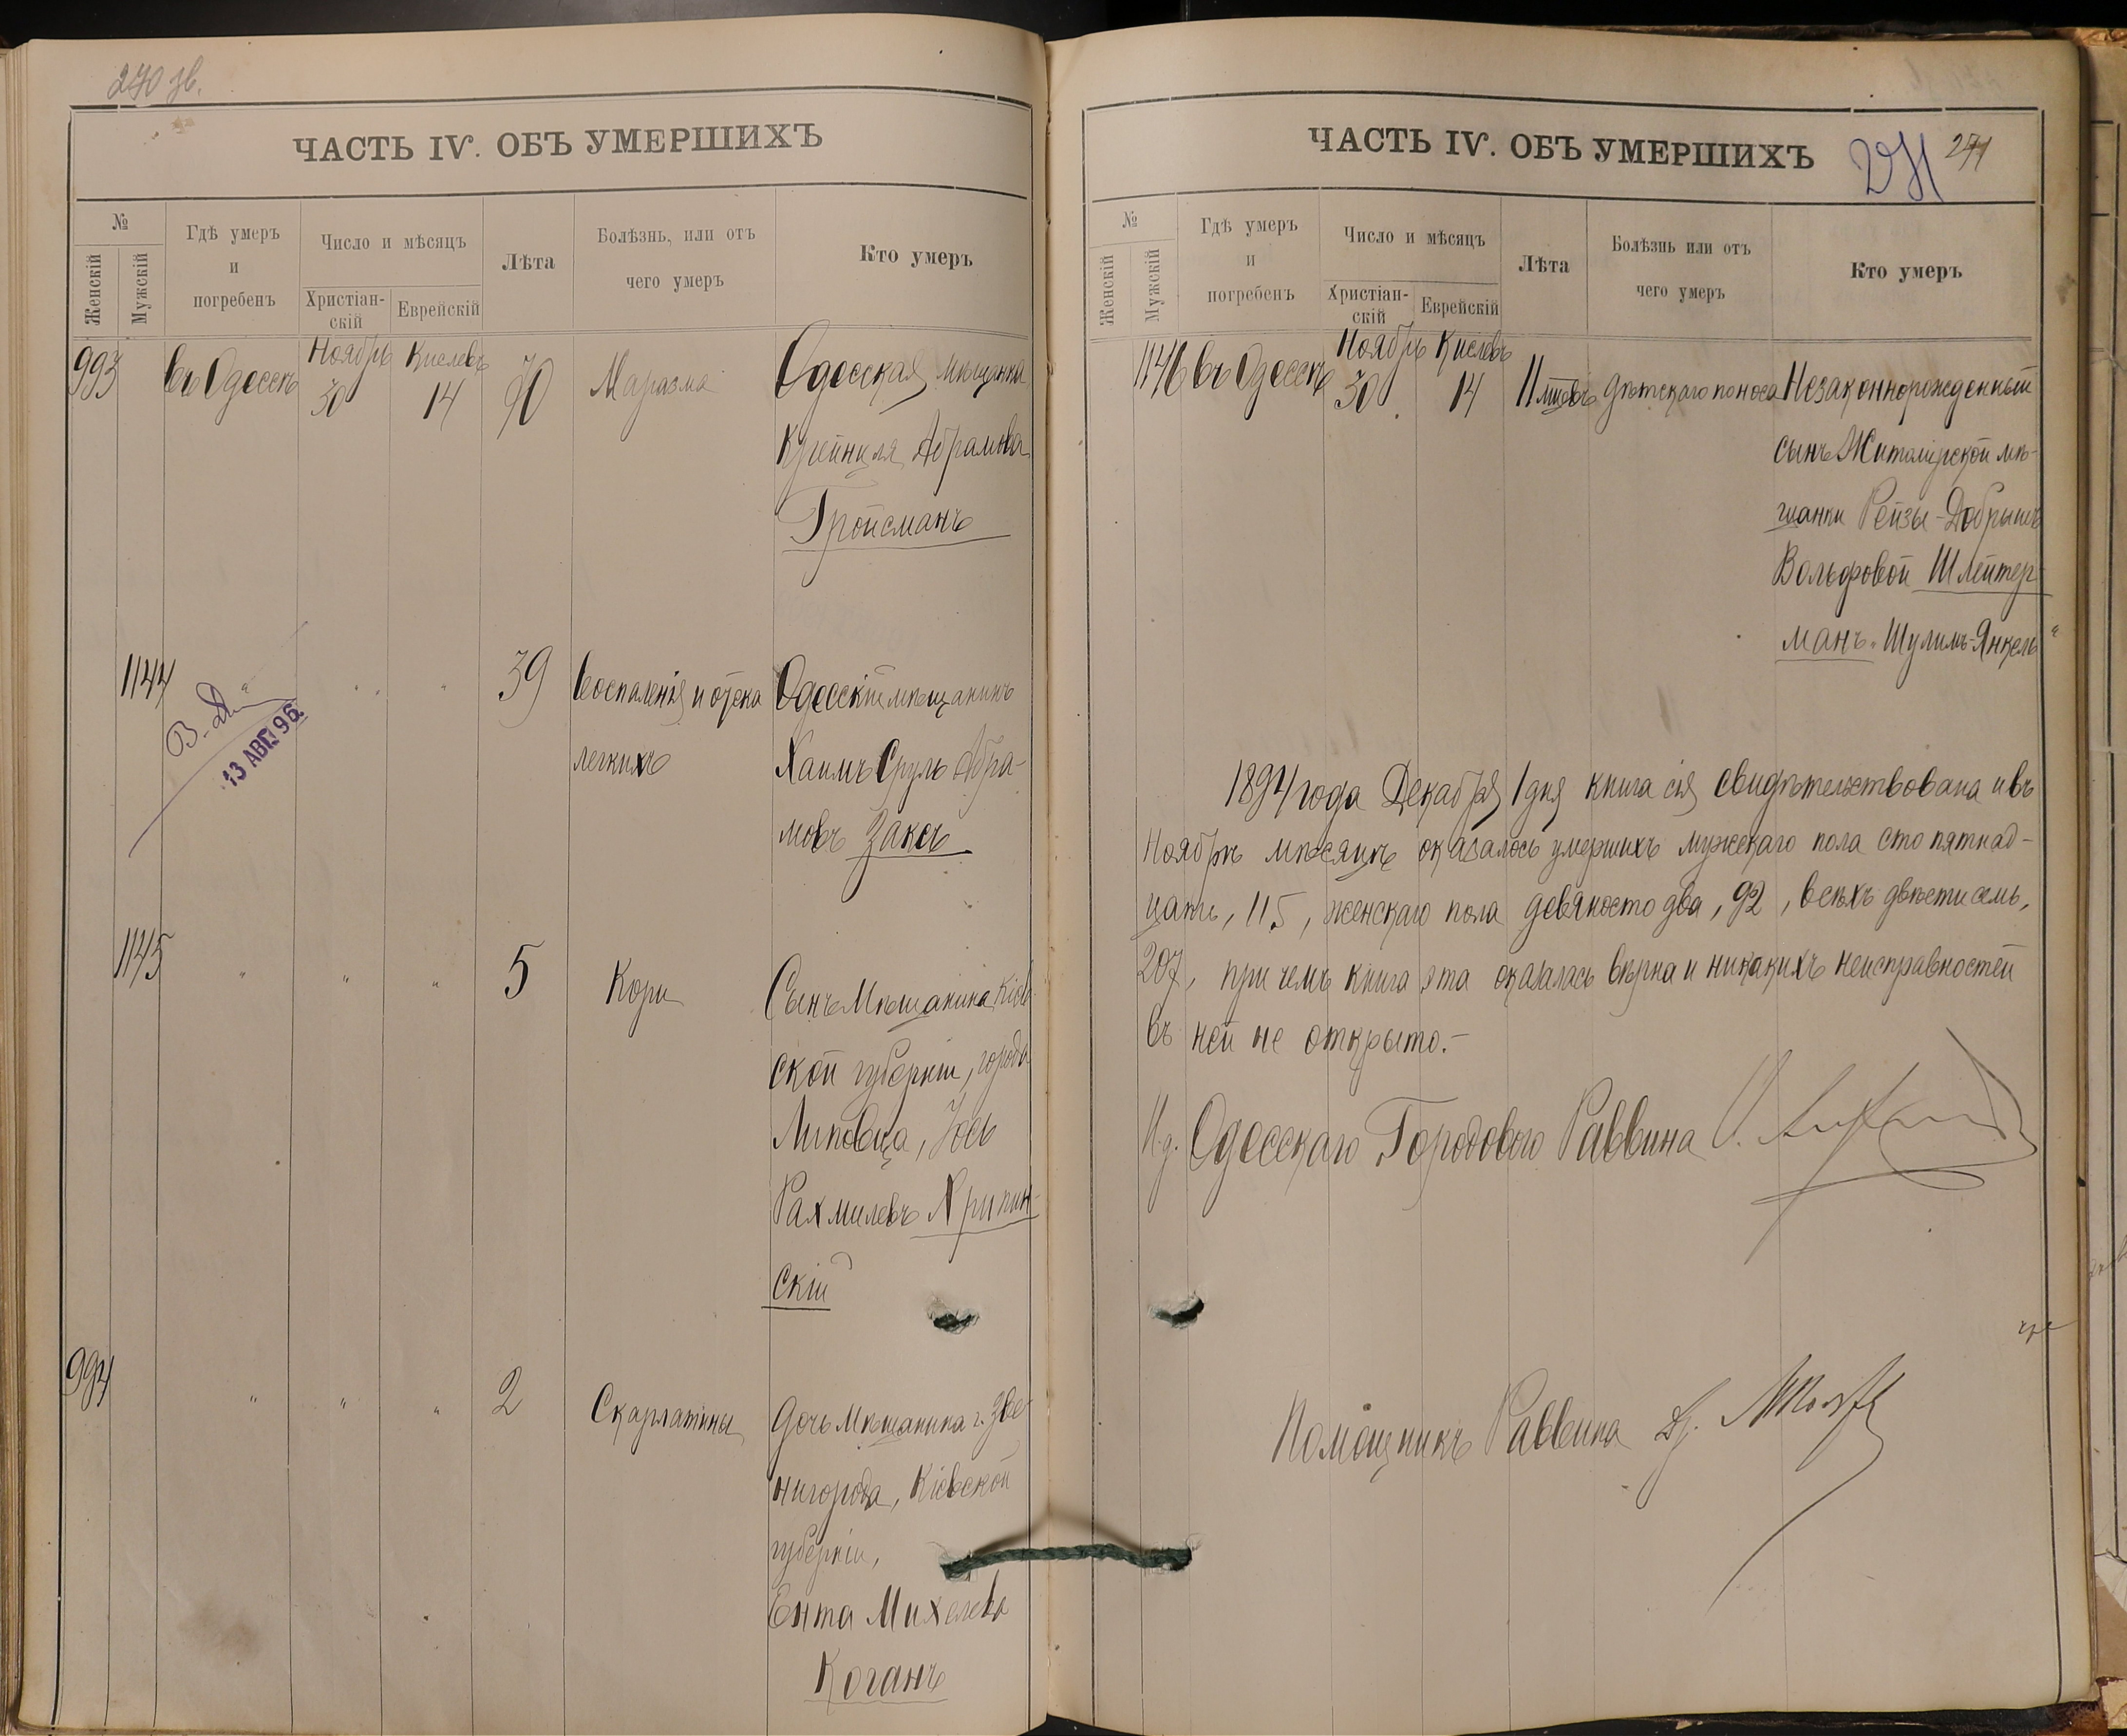 270 зв.
ЧАСТЬ IV. ОБЪ УМЕРШИХЪ
№
Женскій
Мужскій
Гдѣ умеръ
и
погребенъ
Число и мѣсяцъ
Христіан-
скій
Еврейскій
Лѣта
Болѣзнь, или отъ
чего умеръ
Кто умеръ
993
въ Одессѣ
Ноябрь
30
Кислевъ
14
70
Маразма
Одесская мѣщанка
Крейнця Абрамова
Гройсманъ
1144
" " "
39
Воспаленія и отека
легкихъ
Одесскій мѣщанинъ
Хаимъ Сруль Абра-
мовъ Заксъ
13 АВГ. 96.
1145
" " "
5
Кори
Сынъ Мѣщанина Кіев-
ской губерніи, города
Липовца, Іось
Рахмилевъ Крипин-
скій
994
" " "
2
Скарлатины
Дочь Мѣщанина г. Зве-
нигорода, Кіевской
губерніи,
Ента Михелева
Коганъ
ЧАСТЬ IV. ОБЪ УМЕРШИХЪ
271
271
№
Женскій
Мужскій
Гдѣ умеръ
и
погребенъ
Число и мѣсяцъ
Христіан-
скій
Еврейскій
Лѣта
Болѣзнь или отъ
чего умеръ
Кто умеръ
1146
въ Одессѣ
Ноябрь
30
Кислевъ
14
11 мѣс.
Дѣтскаго поноса
Незаконнорожденный
сынъ Житомірской мѣ-
щанки Рейзы-Добрышъ
Вольфовой Шлейтер-
манъ "Шулимъ-Янкель"
1894 года Декабря 1 дня книга сія свидѣтельствована и въ
Ноябрѣ мѣсяцѣ оказалось умершихъ мужескаго пола сто пятнад-
цать, 115, женскаго пола девяносто два, 92, всѣхъ двѣсти семь,
207, при чемъ книга эта оказалась вѣрна и никакихъ неисправностей
въ ней не открыто.-
И.д. Одесскаго Городового Раввина
Помощникъ Раввина